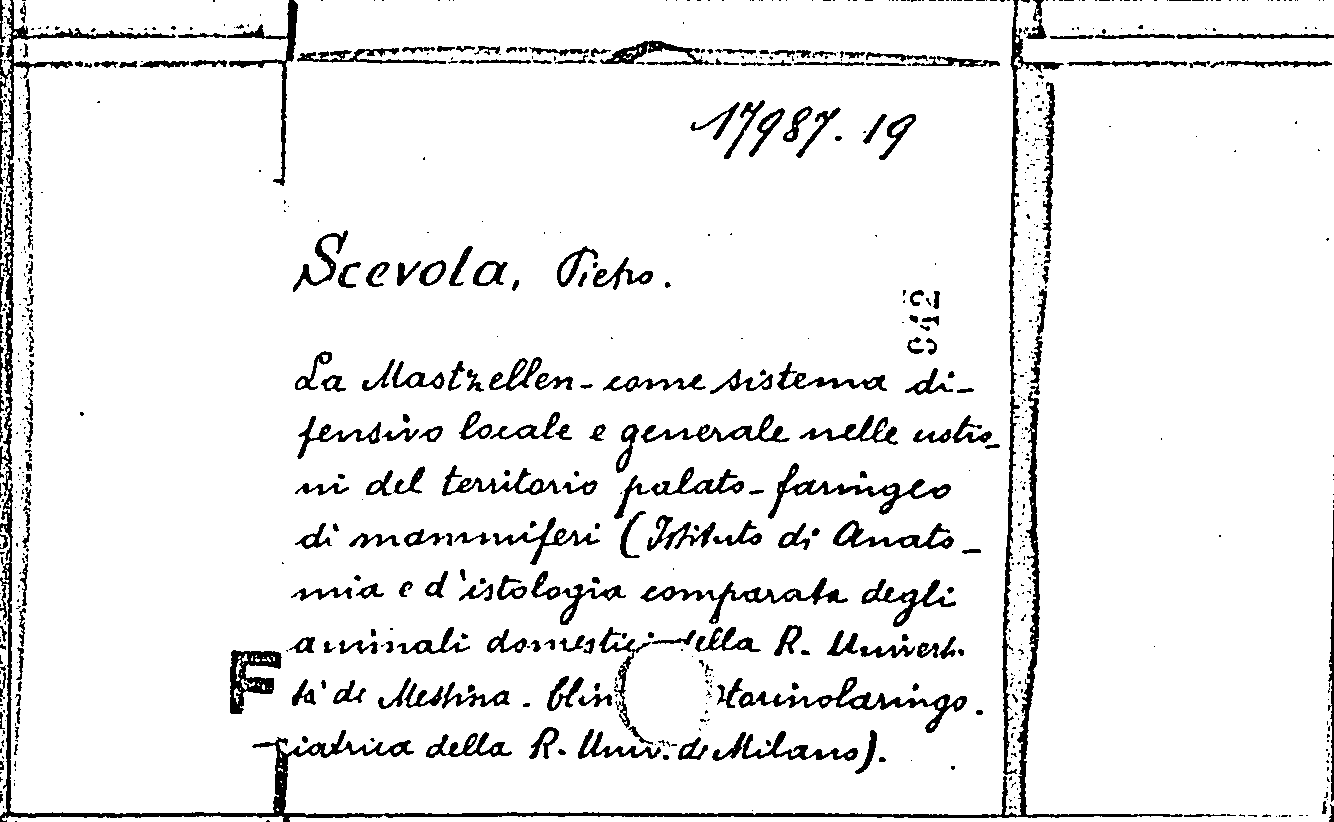 17987.19
Scevola, Pietro.
942
La Mastzellen - come sistema di-
fensivo locale e generale nelle ustio-
ni del territorio palato-faringeo
di mammiferi (Istituto di Anato-
mia e d'istologia comparata degli
animali domestici della R. Universi-
F
tà di Messina. Clin Otorinolaringo.
-iatrica della R. Univ. di Milano).